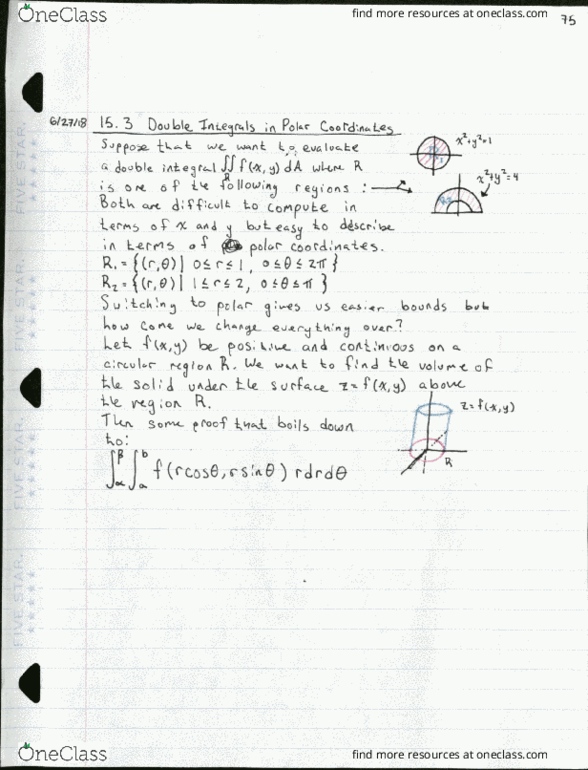 OneClass
find more resources at oneclass.com
75
6/27/18 15.3 Double Integrals in Polar Coordinates
Suppose that we want to evaluate
x²+y²=1
a double integral ∬ f(x,y) dA where R
R
x²+y²=4
is one of the following regions :
Both are difficult to compute in
terms of x and y but easy to describe
in terms of polar coordinates.
R₁ = {(r,θ) | 0≤r≤1, 0≤θ≤2π}
R₂ = {(r,θ) | 1≤r≤2, 0≤θ≤π}
Switching to polar gives us easier bounds but
how come we change everything over?
Let f(x,y) be positive and continious on a
circular region R. We want to find the volume of
the solid under the surface z=f(x,y) above
the region R.
z=f(x,y)
Then some proof that boils down
to:
R
∫_α^β ∫_a^b f(rcosθ, rsinθ) rdrdθ
FIVE STAR.
FIVE STAR.
FIVE STAR.
FIVE STAR.
OneClass
find more resources at oneclass.com